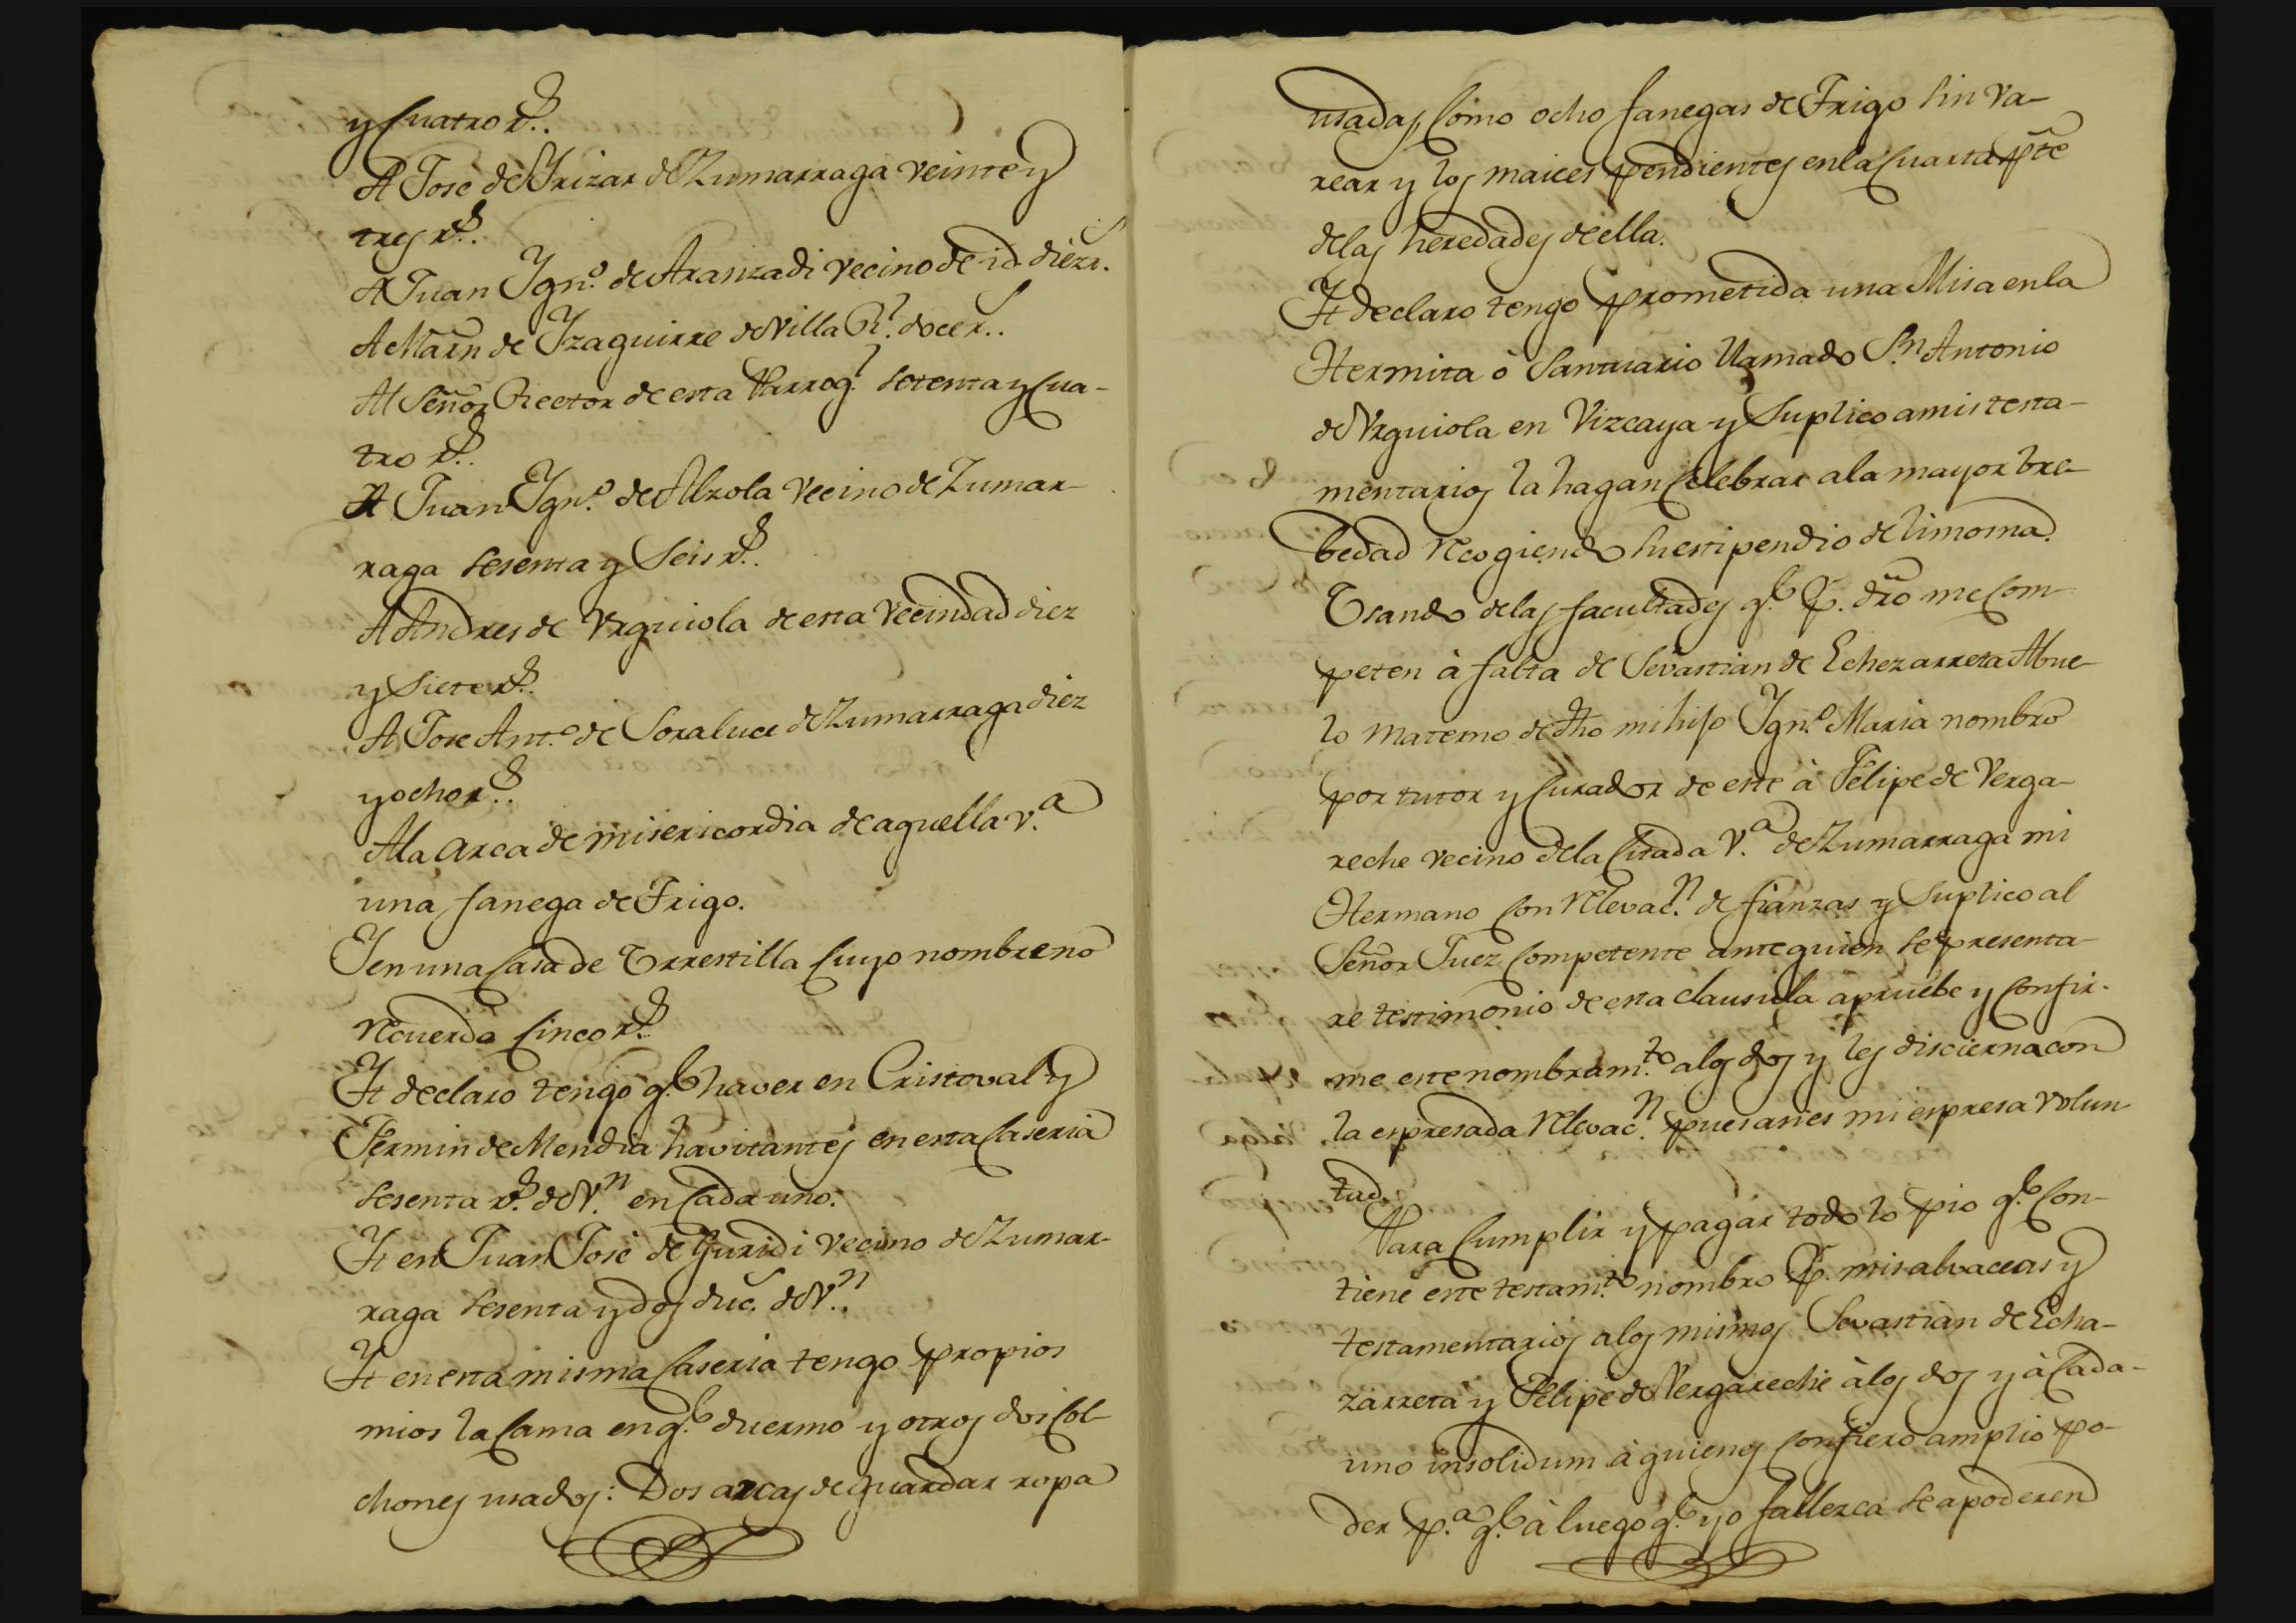 y Cuatro r.s
A Jose de Yrizar de Zumarraga veinte y
tres r.s
A Juan Ygn.o de Aranzadi vecino de id. diez r.
A Marn de Yzaguirre de Villa R.l doce r..
Al Señor Rector de esta Parroq.l setenta y Cua-
tro r.s
A Juan Ygn.o de Alzola vecino de Zumar-
raga sesenta y Seis r.s
A Andres de Vrquiola de esta vecindad diez
y Siete r.s
A Jose Ant.o de Soraluce de Zumarraga diez
y ocho r.s
A la arca de misericordia de aquella v.a
una fanega de Trigo.
Y en una Casa de Vrrestilla Cuyo nombre no
recuerda Cinco r.s
Yt declaro tengo q.e haver en Cristoval y
Fermin de Mendia havitantes en esta Caseria
sesenta r.s de V.n en Cada uno.
Yt en Juan José de Guridi vecino de Zumar-
raga sesenta y dos duc.s de V.n
Yt en esta misma Caseria tengo propios
mios la Cama en q.e duermo y otros dos Col-
chones usados: Dos arcas de guardar ropa
usadas, Como ocho fanegas de Trigo sin va-
rear y los maices pendientes en la Cuarta pte
de las heredades de ella.
Yt declaro tengo prometida una Misa en la
Hermita ò Santuario llamado S.n Antonio
de Vrquiola en Vizcaya y Suplico a mis testa-
mentarios la hagan Celebrar a la mayor bre-
bedad recogiendo su estipendio de limosna.
Vsando de las facultades q.e p. dro me Com-
peten à falta de Sevastian de Echezarreta Abue-
lo materno de dho mi hijo Ygn.o Maria nombro
por tutor y Curador de este à Felipe de Verga-
reche vecino de la Citada V.a de Zumarraga mi
Hermano Con relevac.n de fianzas y Suplico al
Señor Juez Competente ante quien se presenta-
re testimonio de esta clausula apruebe y Confir-
me este nombram.to a los dos y les discierna con
la espresada relevac.n pues asi es mi espresa volun
tad.
Para Cumplir y pagar todo lo pio q.e Con-
tiene este testam.to nombro p. mis alvaceas y
testamentarios a los mismos Sevastian de Echa-
zarreta y Felipe de Vergareche à los dos y à Cada-
uno insolidum à quienes Confiero amplio po-
der p.a q.e à luego q.e yo fallezca se apoderen